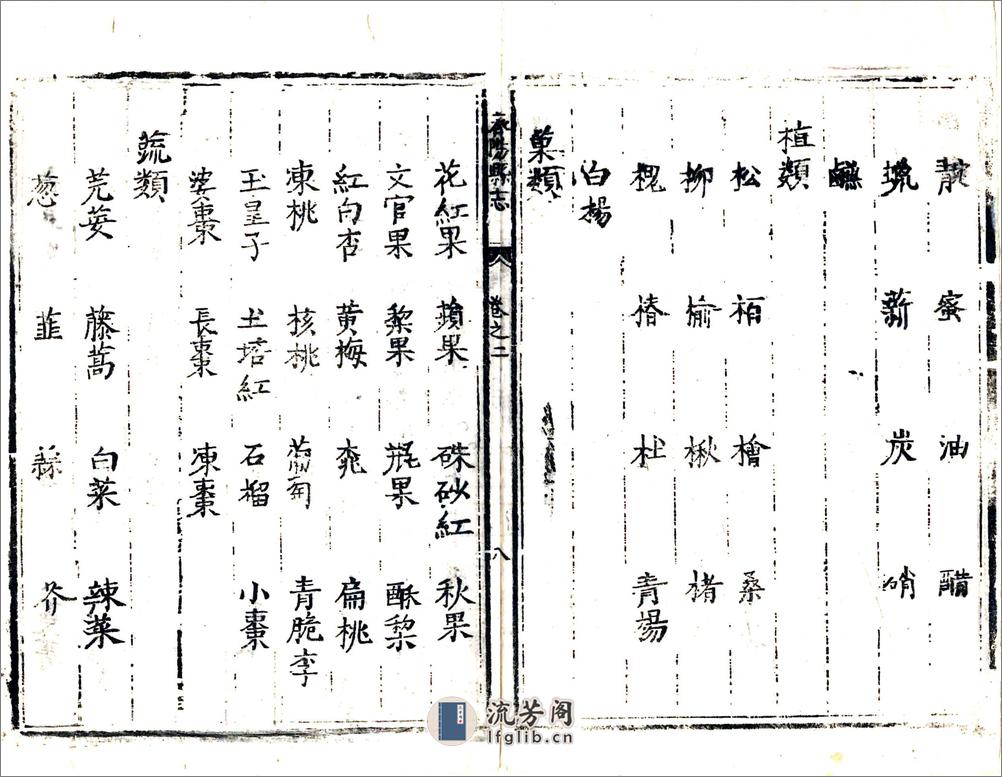 靛 蜜 油 醋
蠟 薪 炭 硝
鹽
植類
松 柏 檜 桑
柳 榆 楸 楮
槐 椿 杜 青楊
白楊
菓類
陽縣志 卷之二 八
花紅果 蘋果 硃砂紅 秋果
文官果 黎果 瓶果 酥梨
紅白杏 黄梅 桃 扁桃
凍桃 核桃 葡萄 青脆李
玉皇子 土塔紅 石榴 小棗
婆棗 長棗 凍棗
蔬類
芫荽 藤蒿 白菜 辣菜
葱 韮 蒜 芥
流芳阁
lfglib.cn